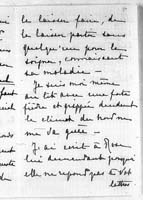 le laisser faire, de
le laisser partir sans
quelqu'un pour le
soigner, connaissant
sa maladie –
Je suis moi même
au lit avec une forte
fièvre et grippée decidement
le climat du nord ne
me va guère –
J'ai ecrit à Rosa
lui demandant pourquoi
elle ne repond pas à vos
lettres